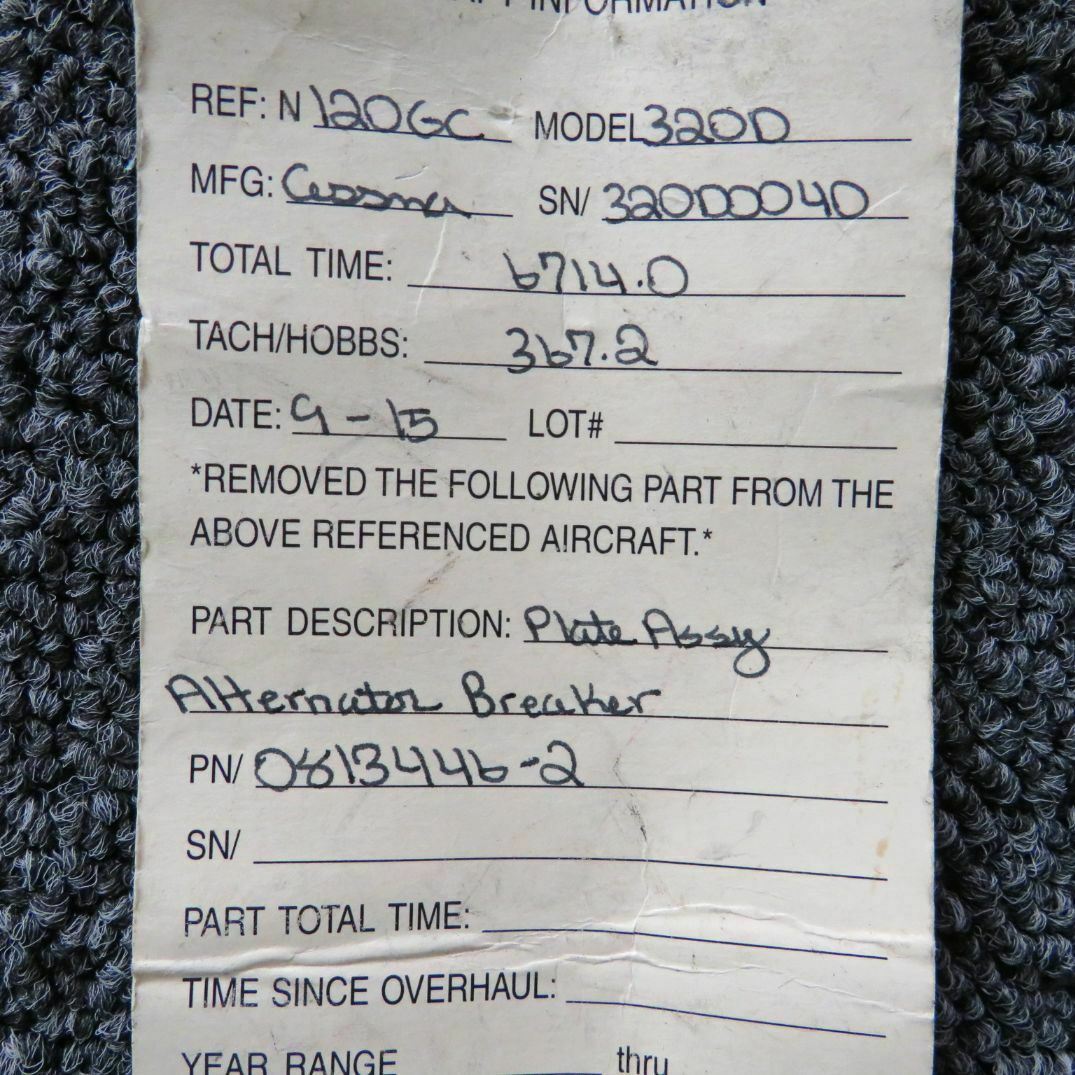 INFORMATION
REF: N 120GC MODEL 320D
MFG: Cessna SN/ 320D0040
TOTAL TIME: 6714.0
TACH/HOBBS: 367.2
DATE: 9-15 LOT#
*REMOVED THE FOLLOWING PART FROM THE
ABOVE REFERENCED AIRCRAFT.*
PART DESCRIPTION: Plate Assy
Alternator Breaker
PN/ 0813446-2
SN/
PART TOTAL TIME:
TIME SINCE OVERHAUL:
YEAR RANGE thru